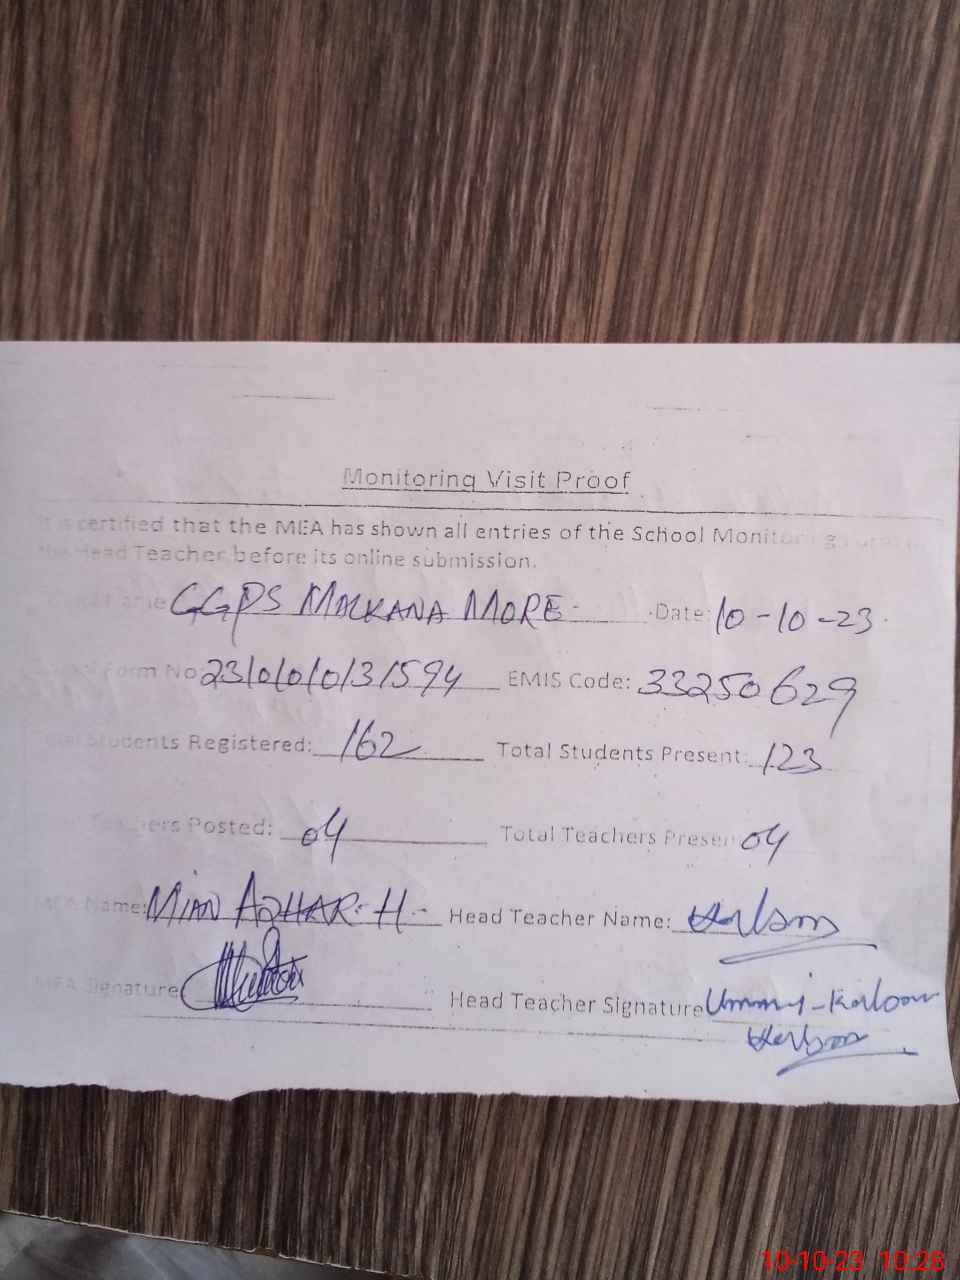 Monitoring Visit Proof
It is certified that the MEA has shown all entries of the School Monitoring
the Head Teacher before its online submission.
Name GGPS MALKANA MORE Date: 10-10-23
Form No: EMIS Code: 33250629
Total Students Registered: 162 Total Students Present: 123
Total Teachers Posted: 04 Total Teachers Present 04
MEA Name: MIAN AZHAR. H. Head Teacher Name:
MEA Signature Head Teacher Signature Ummi-Kalsoom
10-10-23 10:28